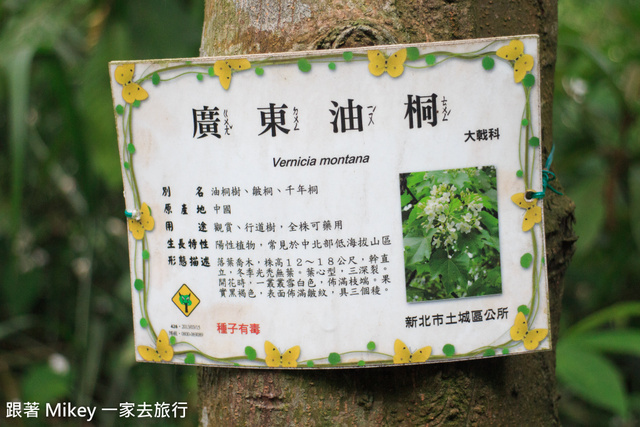 廣東油桐
ㄍㄨㄤˇ ㄉㄨㄥ ㄧㄡˊ ㄊㄨㄥˊ
大戟科
Vernicia montana
別名 油桐樹、皺桐、千年桐
原產地 中國
用途 觀賞、行道樹，全株可藥用
生長特性 陽性植物，常見於中北部低海拔山區
形態描述 落葉喬木，株高１２～１８公尺，幹直
立，冬季光禿無葉。葉心型，三深裂。
開花時，一叢叢雪白色，佈滿枝端。果
實黑褐色，表面佈滿皺紋，具三個稜。
種子有毒
新北市土城區公所
跟著 Mikey 一家去旅行